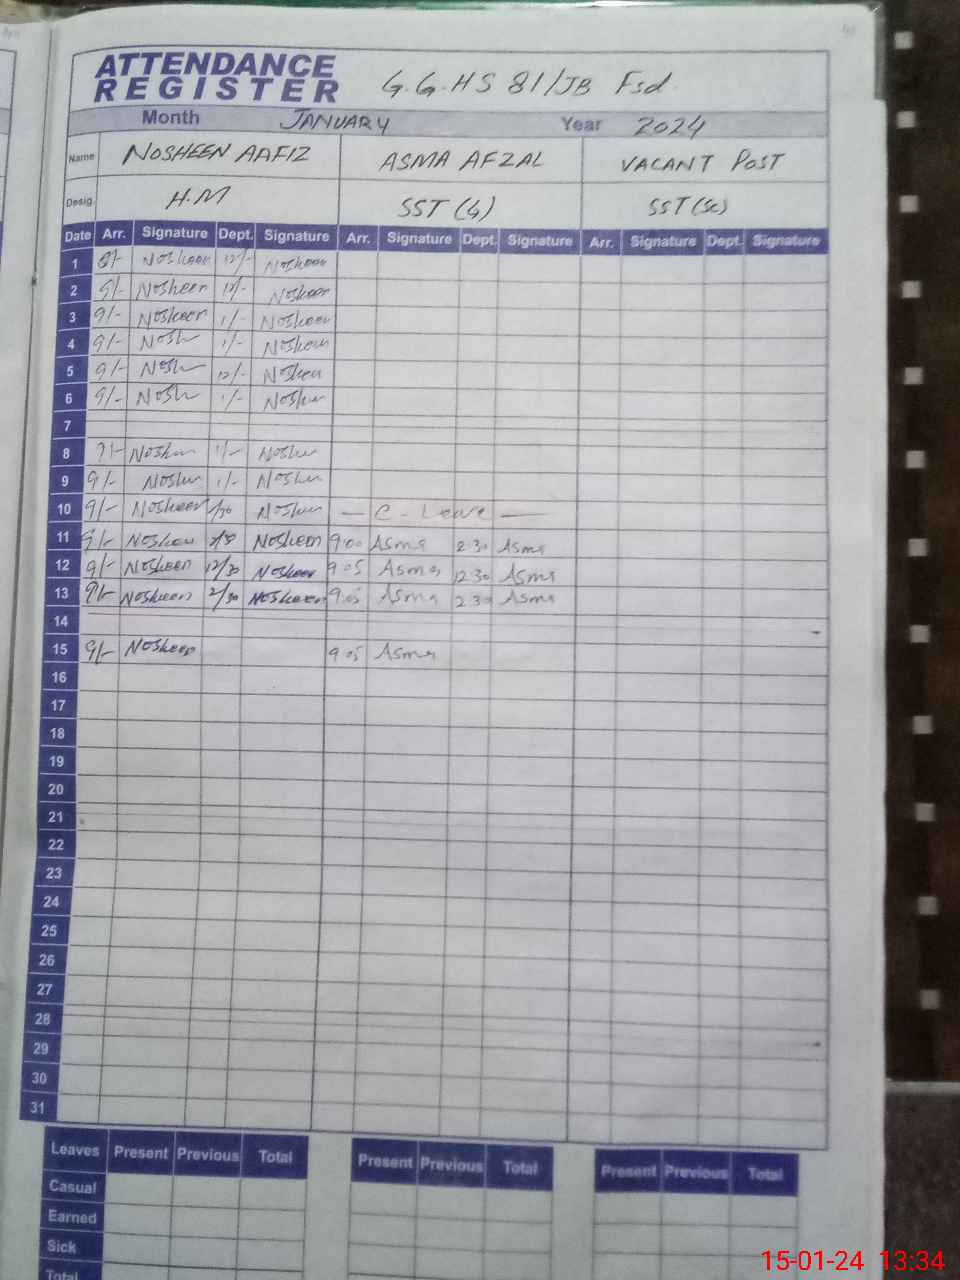 ATTENDANCE
REGISTER G.G.HS 81/JB Fsd.
Month JANUARY Year 2024
Name NOSHEEN AAFIZ ASMA AFZAL VACANT POST
Desig. H.M SST (G) SST (Sc)
Date Arr. Signature Dept. Signature Arr. Signature Dept. Signature Arr. Signature Dept. Signature
1 Nosheen 12/- Nosheen
2 9/- Nosheen 12/- Nosheen
3 9/- Nosheen 1/- Nosheen
4 9/- Nosh 1/- Nosheen
5 9/- Nosh 12/- Nosheen
6 9/- Nosh 1/- Noshen
7
8 9/- Noshen 1/- Noshen
9 9/- Noshen 1/- Noshen
10 9/- Nosheen Noshen — C - Leave —
11 9/- Nosheen Nosheen 9:00 Asma 2:30 Asma
12 9/- Nosheen 12/30 Nosheen 9:05 Asma 12:30 Asma
13 9/- Nosheen 2/30 Nosheen 9:05 Asma 2:30 Asma
14
15 9/- Nosheen 9:05 Asma
16
17
18
19
20
21
22
23
24
25
26
27
28
29
30
31
Leaves Present Previous Total Present Previous Total Present Previous Total
Casual
Earned
Sick
Total
15-01-24 13:34